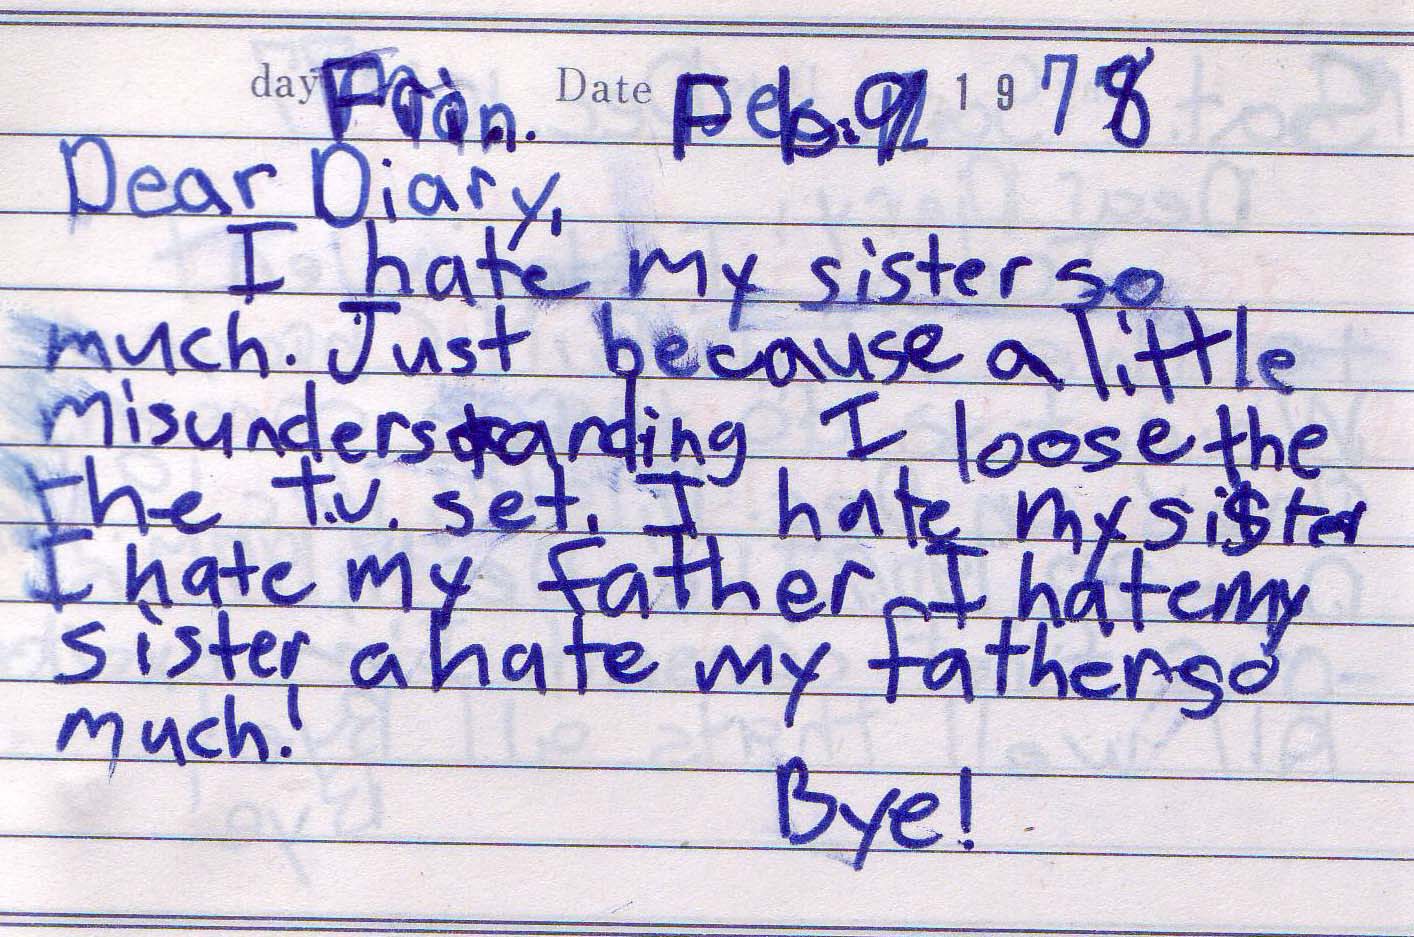 day Date Feb. 1978
Dear Diary,
I hate my sister so
much. Just because a little
misunderstanding I loose the
the t.v. set. I hate my sister
I hate my father I hate my
sister a hate my father so
much!
Bye!